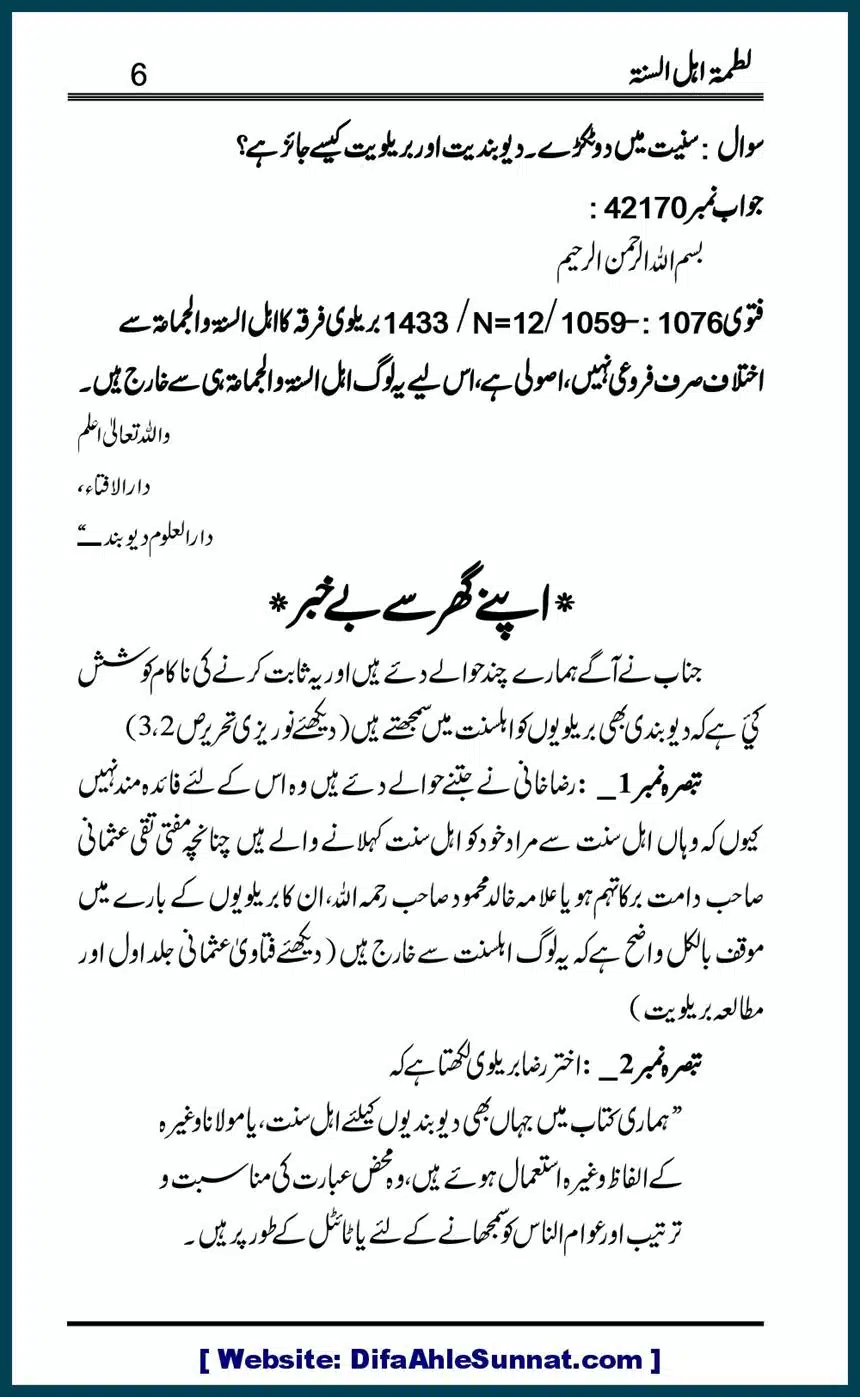 لطمۃ اہل السنۃ
6
سوال : سنیت میں دو ٹکڑے۔ دیوبندیت اور بریلویت کیسے جائز ہے؟
جواب نمبر 42170 :
بسم اللہ الرحمن الرحیم
فتوی 1076 :– 1059 /1433 / N=12 بریلوی فرقہ کا اہل السنۃ والجماعۃ سے
اختلاف صرف فروعی نہیں، اصولی ہے، اس لیے یہ لوگ اہل السنۃ والجماعۃ ہی سے خارج ہیں۔
واللہ تعالیٰ اعلم
دارالافتاء،
دارالعلوم دیوبند __“
*اپنے گھر سے بے خبر*
جناب نے آگے ہمارے چند حوالے دئے ہیں اور یہ ثابت کرنے کی ناکام کوشش
کیَ ہے کہ دیوبندی بھی بریلویوں کو اہلسنت میں سمجھتے ہیں (دیکھئے نوریزی تحریر ص 3،2)
تبصرہ نمبر 1_ : رضاخانی نے جتنے حوالے دئے ہیں وہ اس کے لئے فائدہ مند نہیں
کیوں کہ وہاں اہل سنت سے مراد خود کو اہل سنت کہلانے والے ہیں چنانچہ مفتی تقی عثمانی
صاحب دامت برکاتہم ہو یا علامہ خالد محمود صاحب رحمہ اللہ، ان کا بریلویوں کے بارے میں
موقف بالکل واضح ہے کہ یہ لوگ اہلسنت سے خارج ہیں (دیکھئے فتاویٰ عثمانی جلد اول اور
مطالعہ بریلویت)
تبصرہ نمبر 2_ : اختر رضا بریلوی لکھتا ہے کہ
”ہماری کتاب میں جہاں بھی دیوبندیوں کیلئے اہل سنت، یا مولانا وغیرہ
کے الفاظ وغیرہ استعمال ہوئے ہیں، وہ محض عبارت کی مناسبت و
ترتیب اور عوام الناس کو سمجھانے کے لئے یا ٹائٹل کے طور پر ہیں۔
[ Website: DifaAhleSunnat.com ]